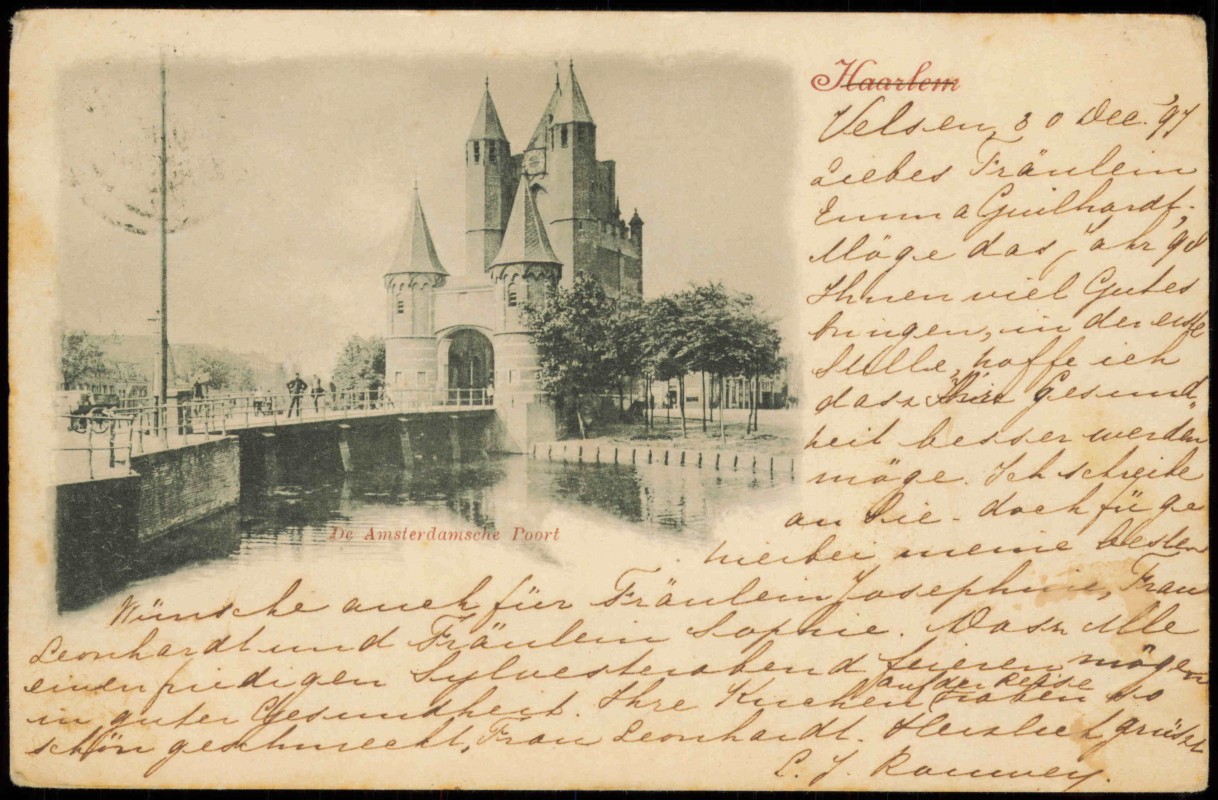 Haarlem
Velsen, 30 Dec. '97
Liebes Fräulein
Emma Guilhardt,
Möge das Jahr 98
Ihnen viel Gutes
bringen, in der erste
Stelle, hoffe ich
dasz Ihre Gesund„
heit besser werden
möge. Ich schreibe
an Sie - doch füge
hierbei meine besten
Wünsche auch für Fräulein Josephine, Frau
Leonhardt und Fräulein Sophie. Dasz Alle
einen friedigen Sylvesterabend feieren mögen
in guter Gesundheit. Ihre Kuchen auf der Reise haben so
schön geschmeckt, Frau Leonhardt. Herzlich grüszt
De Amsterdamsche Poort